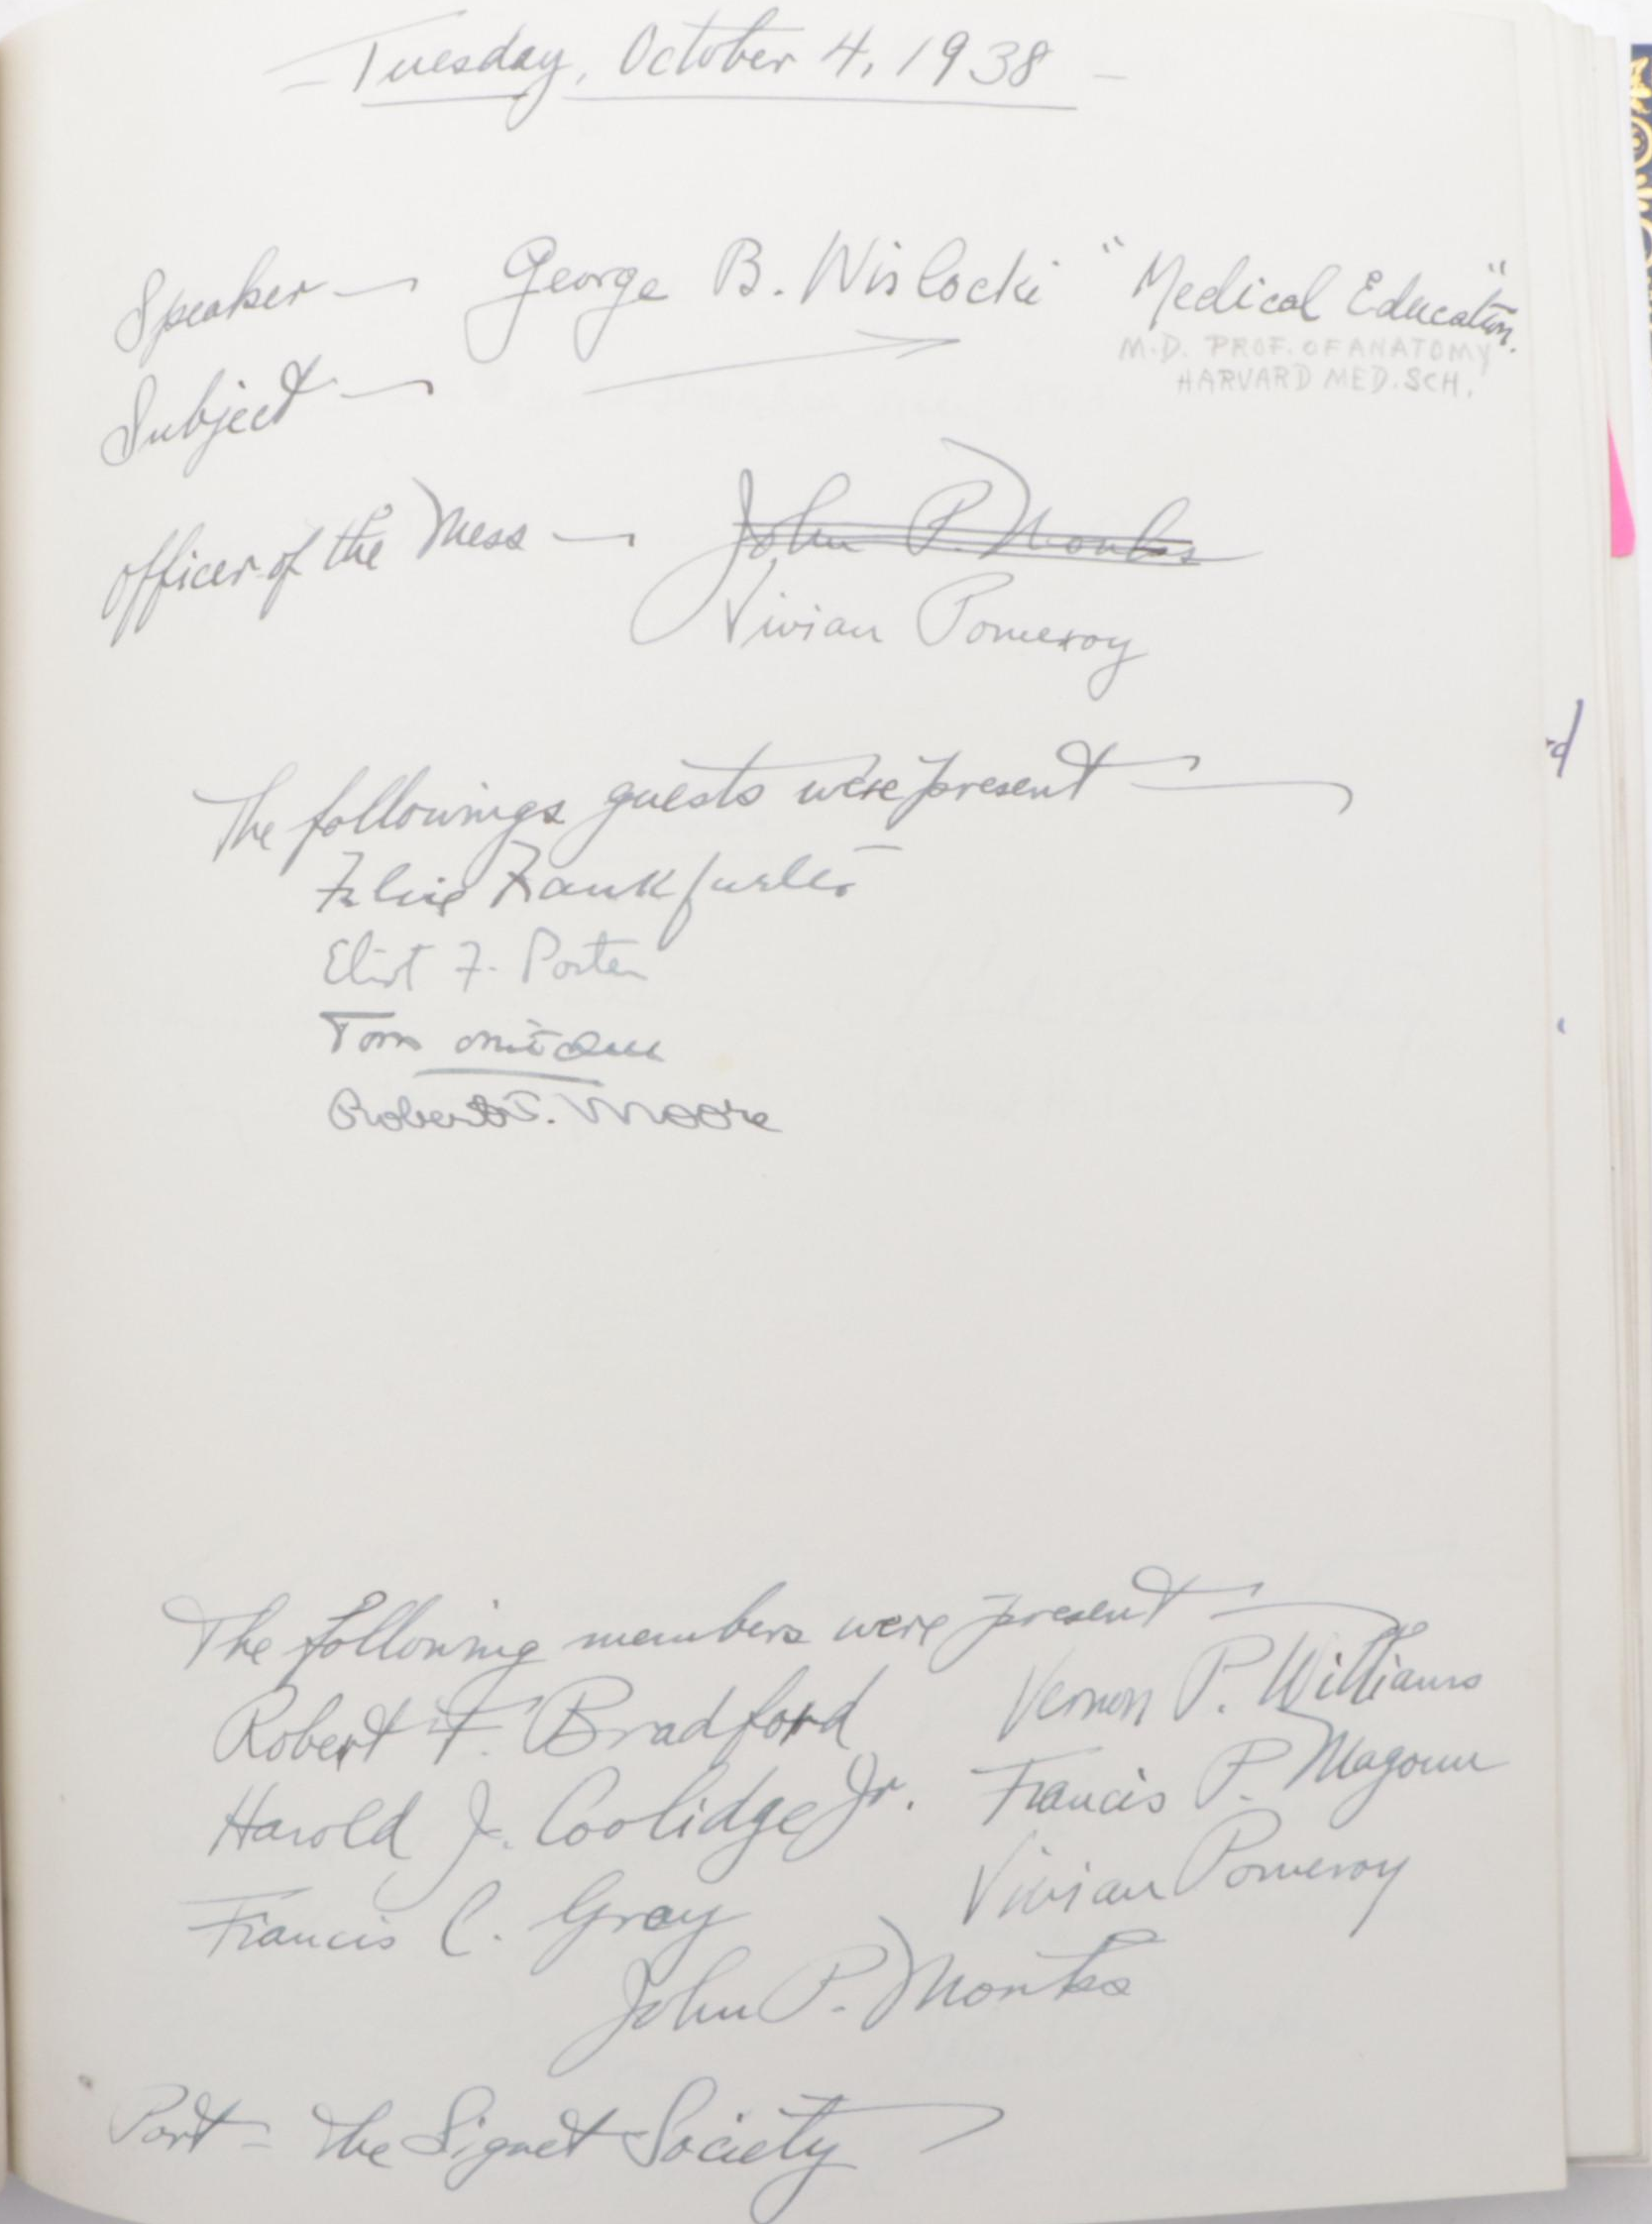 – Tuesday, October 4, 1938 –
Speaker — George B. Wislocki "Medical Education."
M.D. PROF. OF ANATOMY
HARVARD MED. SCH.
Subject —
Officer of the Mess — John P. Monks
Vivian Pomeroy
The followings guests were present —
Felix Frankfurter
Eliot F. Porter
Tom
Robert S. Moore
The following members were present —
Robert F. Bradford Vernon P. Williams
Harold J. Coolidge Jr. Francis P. Magoun
Francis C. Gray Vivian Pomeroy
John P. Monks
Port – The Signet Society